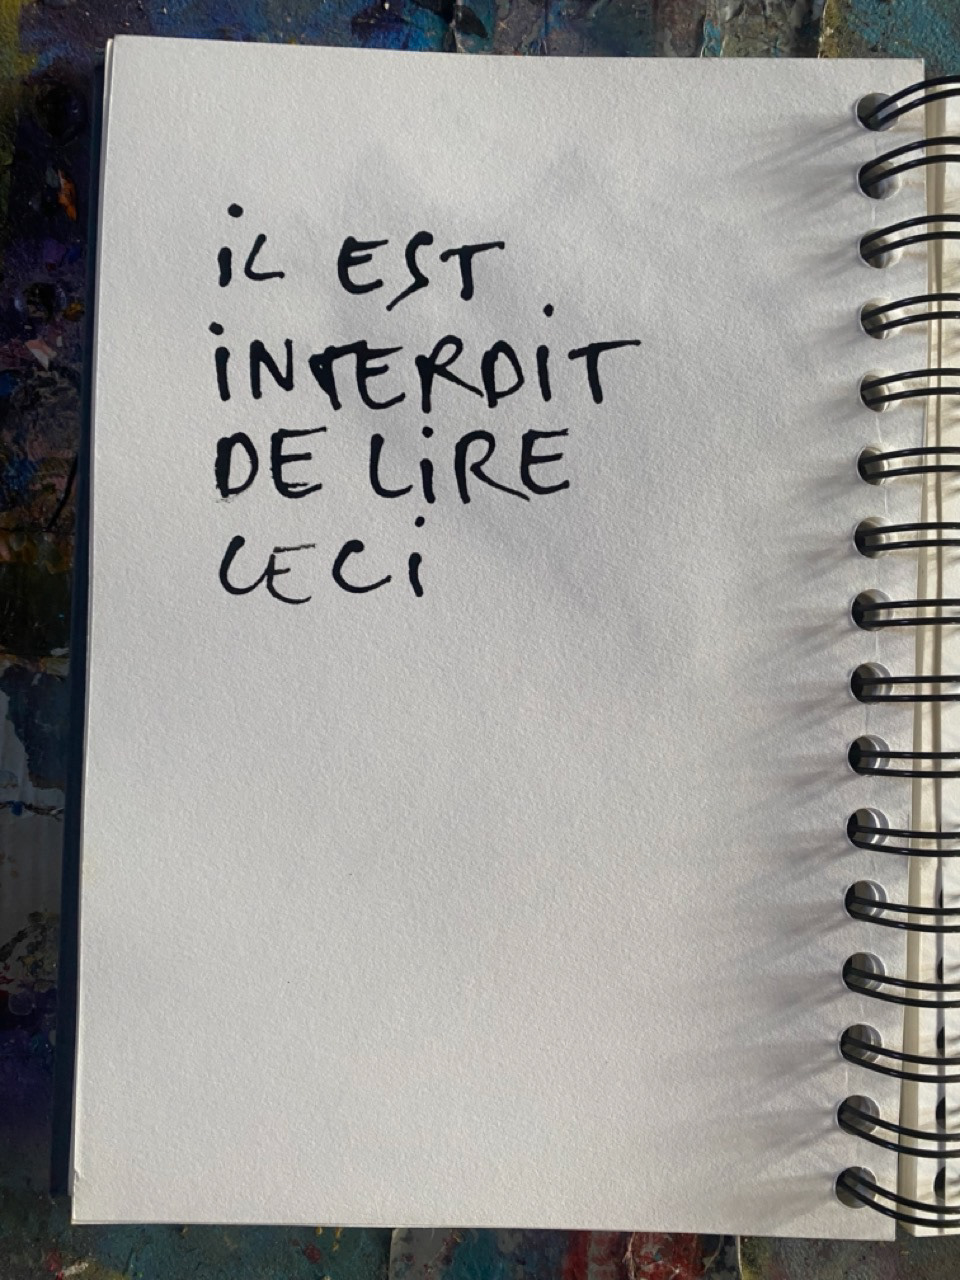 iL EST
iNTERDiT
DE LiRE
CECi